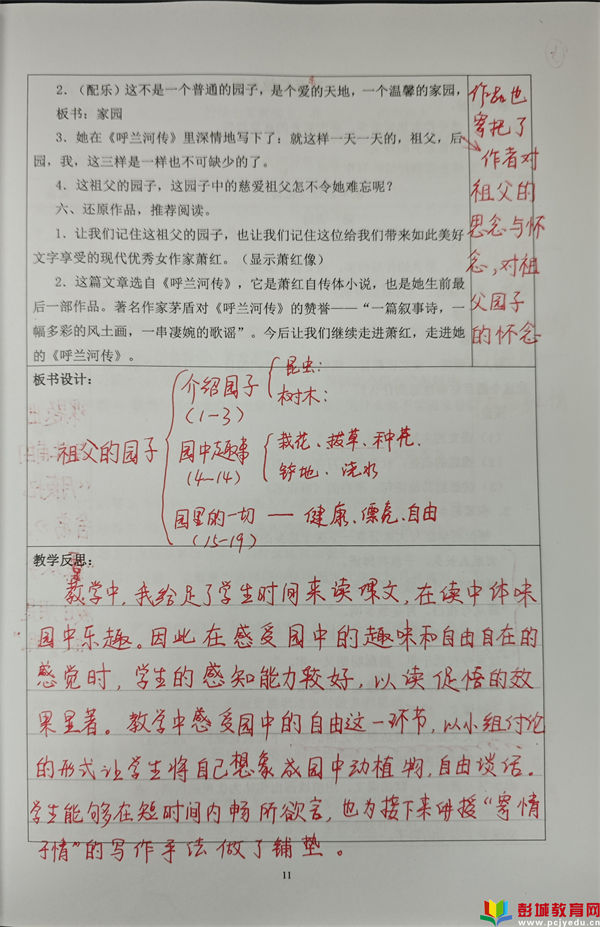 2．（配乐）这不是一个普通的园子，是个爱的天地，一个温馨的家园，
板书：家园
3．她在《呼兰河传》里深情地写下了：就这样一天一天的，祖父，后
园，我，这三样是一样也不可缺少的了。
4．这祖父的园子，这园子中的慈爱祖父怎不令她难忘呢？
六、还原作品，推荐阅读。
1．让我们记住这祖父的园子，也让我们记住这位给我们带来如此美好
文字享受的现代优秀女作家萧红。（显示萧红像）
2．这篇文章选自《呼兰河传》，它是萧红自传体小说，也是她生前最
后一部作品。著名作家茅盾对《呼兰河传》的赞誉——“一篇叙事诗，一
幅多彩的风土画，一串凄婉的歌谣”。今后让我们继续走进萧红，走进她
的《呼兰河传》。
作者对
祖父的
思念与怀
念，对祖
父园子
的怀念
板书设计：
祖父的园子
介绍园子
（1—3）
昆虫：
树木：
园中趣事
（4~14）
栽花、拔草、种花、
铲地、浇水
园里的一切 — 健康、漂亮、自由
（15-19）
教学反思：
教学中，我给足了学生时间来读课文，在读中体味
园中乐趣。因此在感受园中的趣味和自由自在的
感觉时，学生的感知能力较好，以读促悟的效
果显著。教学中感受园中的自由这一环节，以小组讨论
的形式让学生将自己想象成园中动植物，自由谈话。
学生能够在短时间内畅所欲言，也为接下来讲授“寓情
于情”的写作手法做了铺垫。
11
彭城教育网
www.pcjyedu.cn